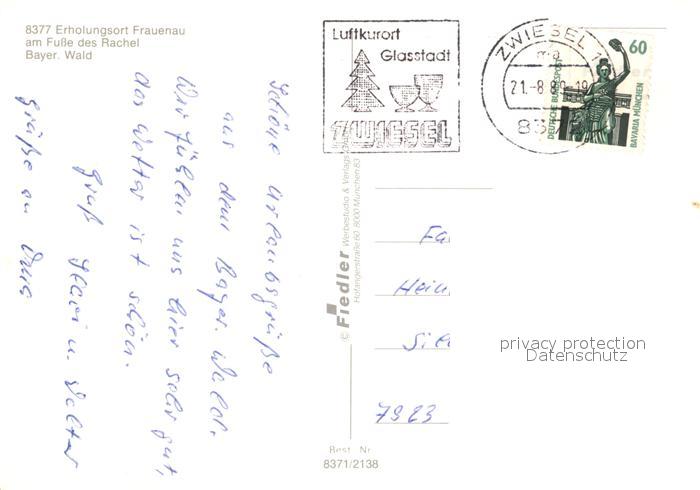 8377 Erholungsort Frauenau
am Fuße des Rachel
Bayer. Wald
Luftkurort
Glasstadt
ZWIESEL
ZWIESEL 1
21.-8.89-19
837
60
DEUTSCHE BUNDESPOST
BAVARIA MÜNCHEN
Schöne Urlaubsgrüße
aus dem Bayer. Wald.
Wir fühlen uns hier sehr gut,
das Wetter ist schön.
Gruß u. Walter
Grüße an Oma
© Fiedler Werbestudio & Verlags
Hofangerstraße 60 8000 München 83
Fa
Hein
7923
privacy protection
Datenschutz
Best. Nr.
8371/2138